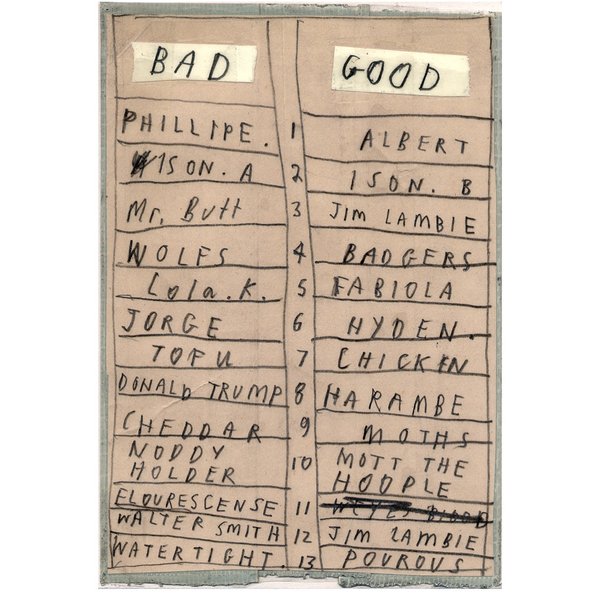 BAD GOOD
PHILLIPE. 1 ALBERT
ISON. A 2 ISON. B
Mr. Butt 3 JIM LAMBIE
WOLFS 4 BADGERS
Lola.K. 5 FABIOLA
JORGE 6 HYDEN.
TOFU 7 CHICKEN
DONALD TRUMP 8 HARAMBE
CHEDDAR 9 MOTHS
NODDY HOLDER 10 MOTT THE HOOPLE
FLOURESCENSE 11
WALTER SMITH 12 JIM LAMBIE
WATERTIGHT. 13 POUROUS